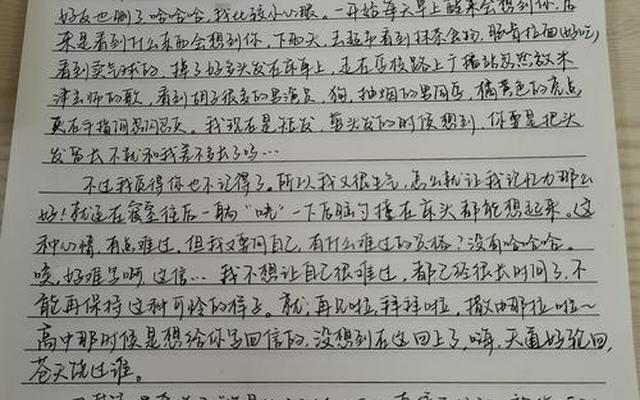 好友也删了哈哈哈,我比较小心眼。一开始每天早上醒来会想到你,后
来是看到什么东西会想到你,下雨天,去超市看到抹茶食物,肠肯拉面(好吃)
看到卖气球的,掉了好多头发在床单上,走在学校路上广播站忽然放米
津玄师的歌,看到胡子很多的男演员,狗,抽烟的男同学,橘黄色的亮点
夹在手指间忽闪忽灭。我现在是短发,剪头发的时候想到,你要是把头
发留长不就和我差不多了吗…
不过我觉得你也不记得了。所以我又很生气,怎么就让我记忆力那么
好!就连在寝室往后一躺"咣"一下后脑勺撞在床头都能想起来。这
种心情,有点难过。但我又要问自己,有什么难过的资格?没有哈哈哈。
唉,好难写啊,这信…我不想让自己很难过,都已经很长时间了,不
能再保持这种可怜的样子。就,再见啦,拜拜啦,撒由那拉~啦~
高中那时候是想给你写回信的,没想到在这回上了,嗨,天道好轮回,
苍天饶过谁。